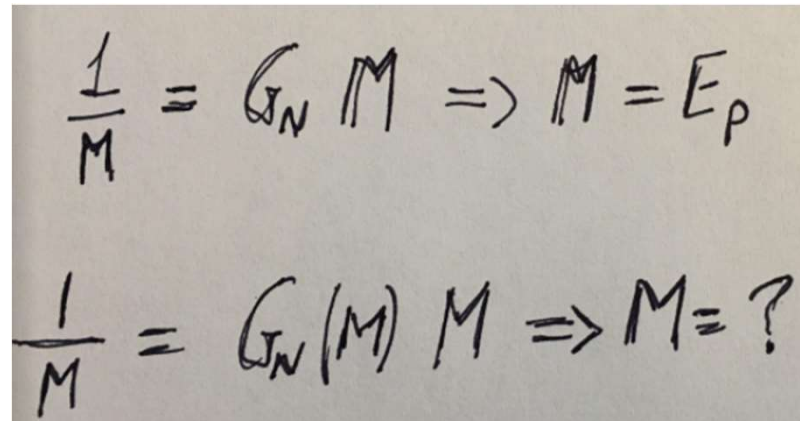 1/M = G_N M => M = E_p
1/M = G_N(M) M => M = ?